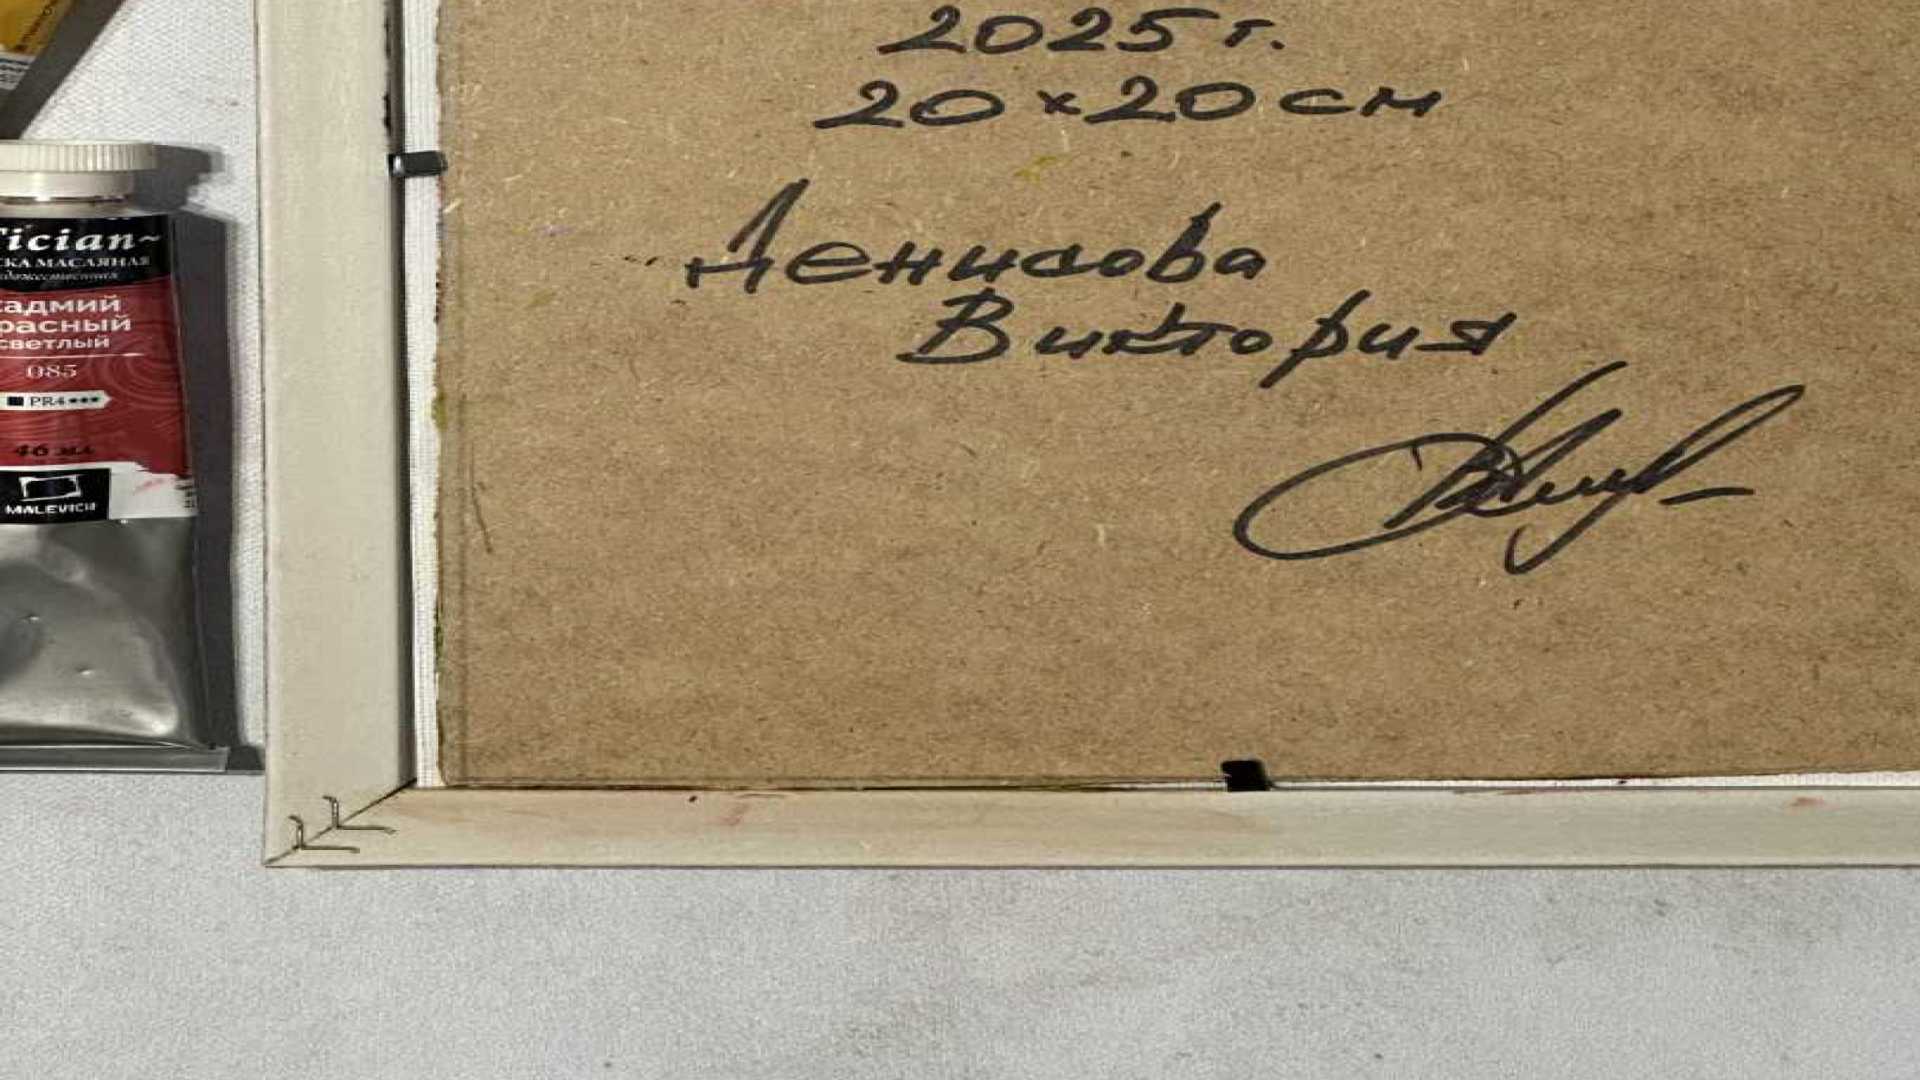 2025 г.
20 × 20 см
Денисова
Виктория
Tician~
МАСЛЯНАЯ
художественная
кадмий
красный
светлый
085
PR4 ***
46 мл
MALEVICH